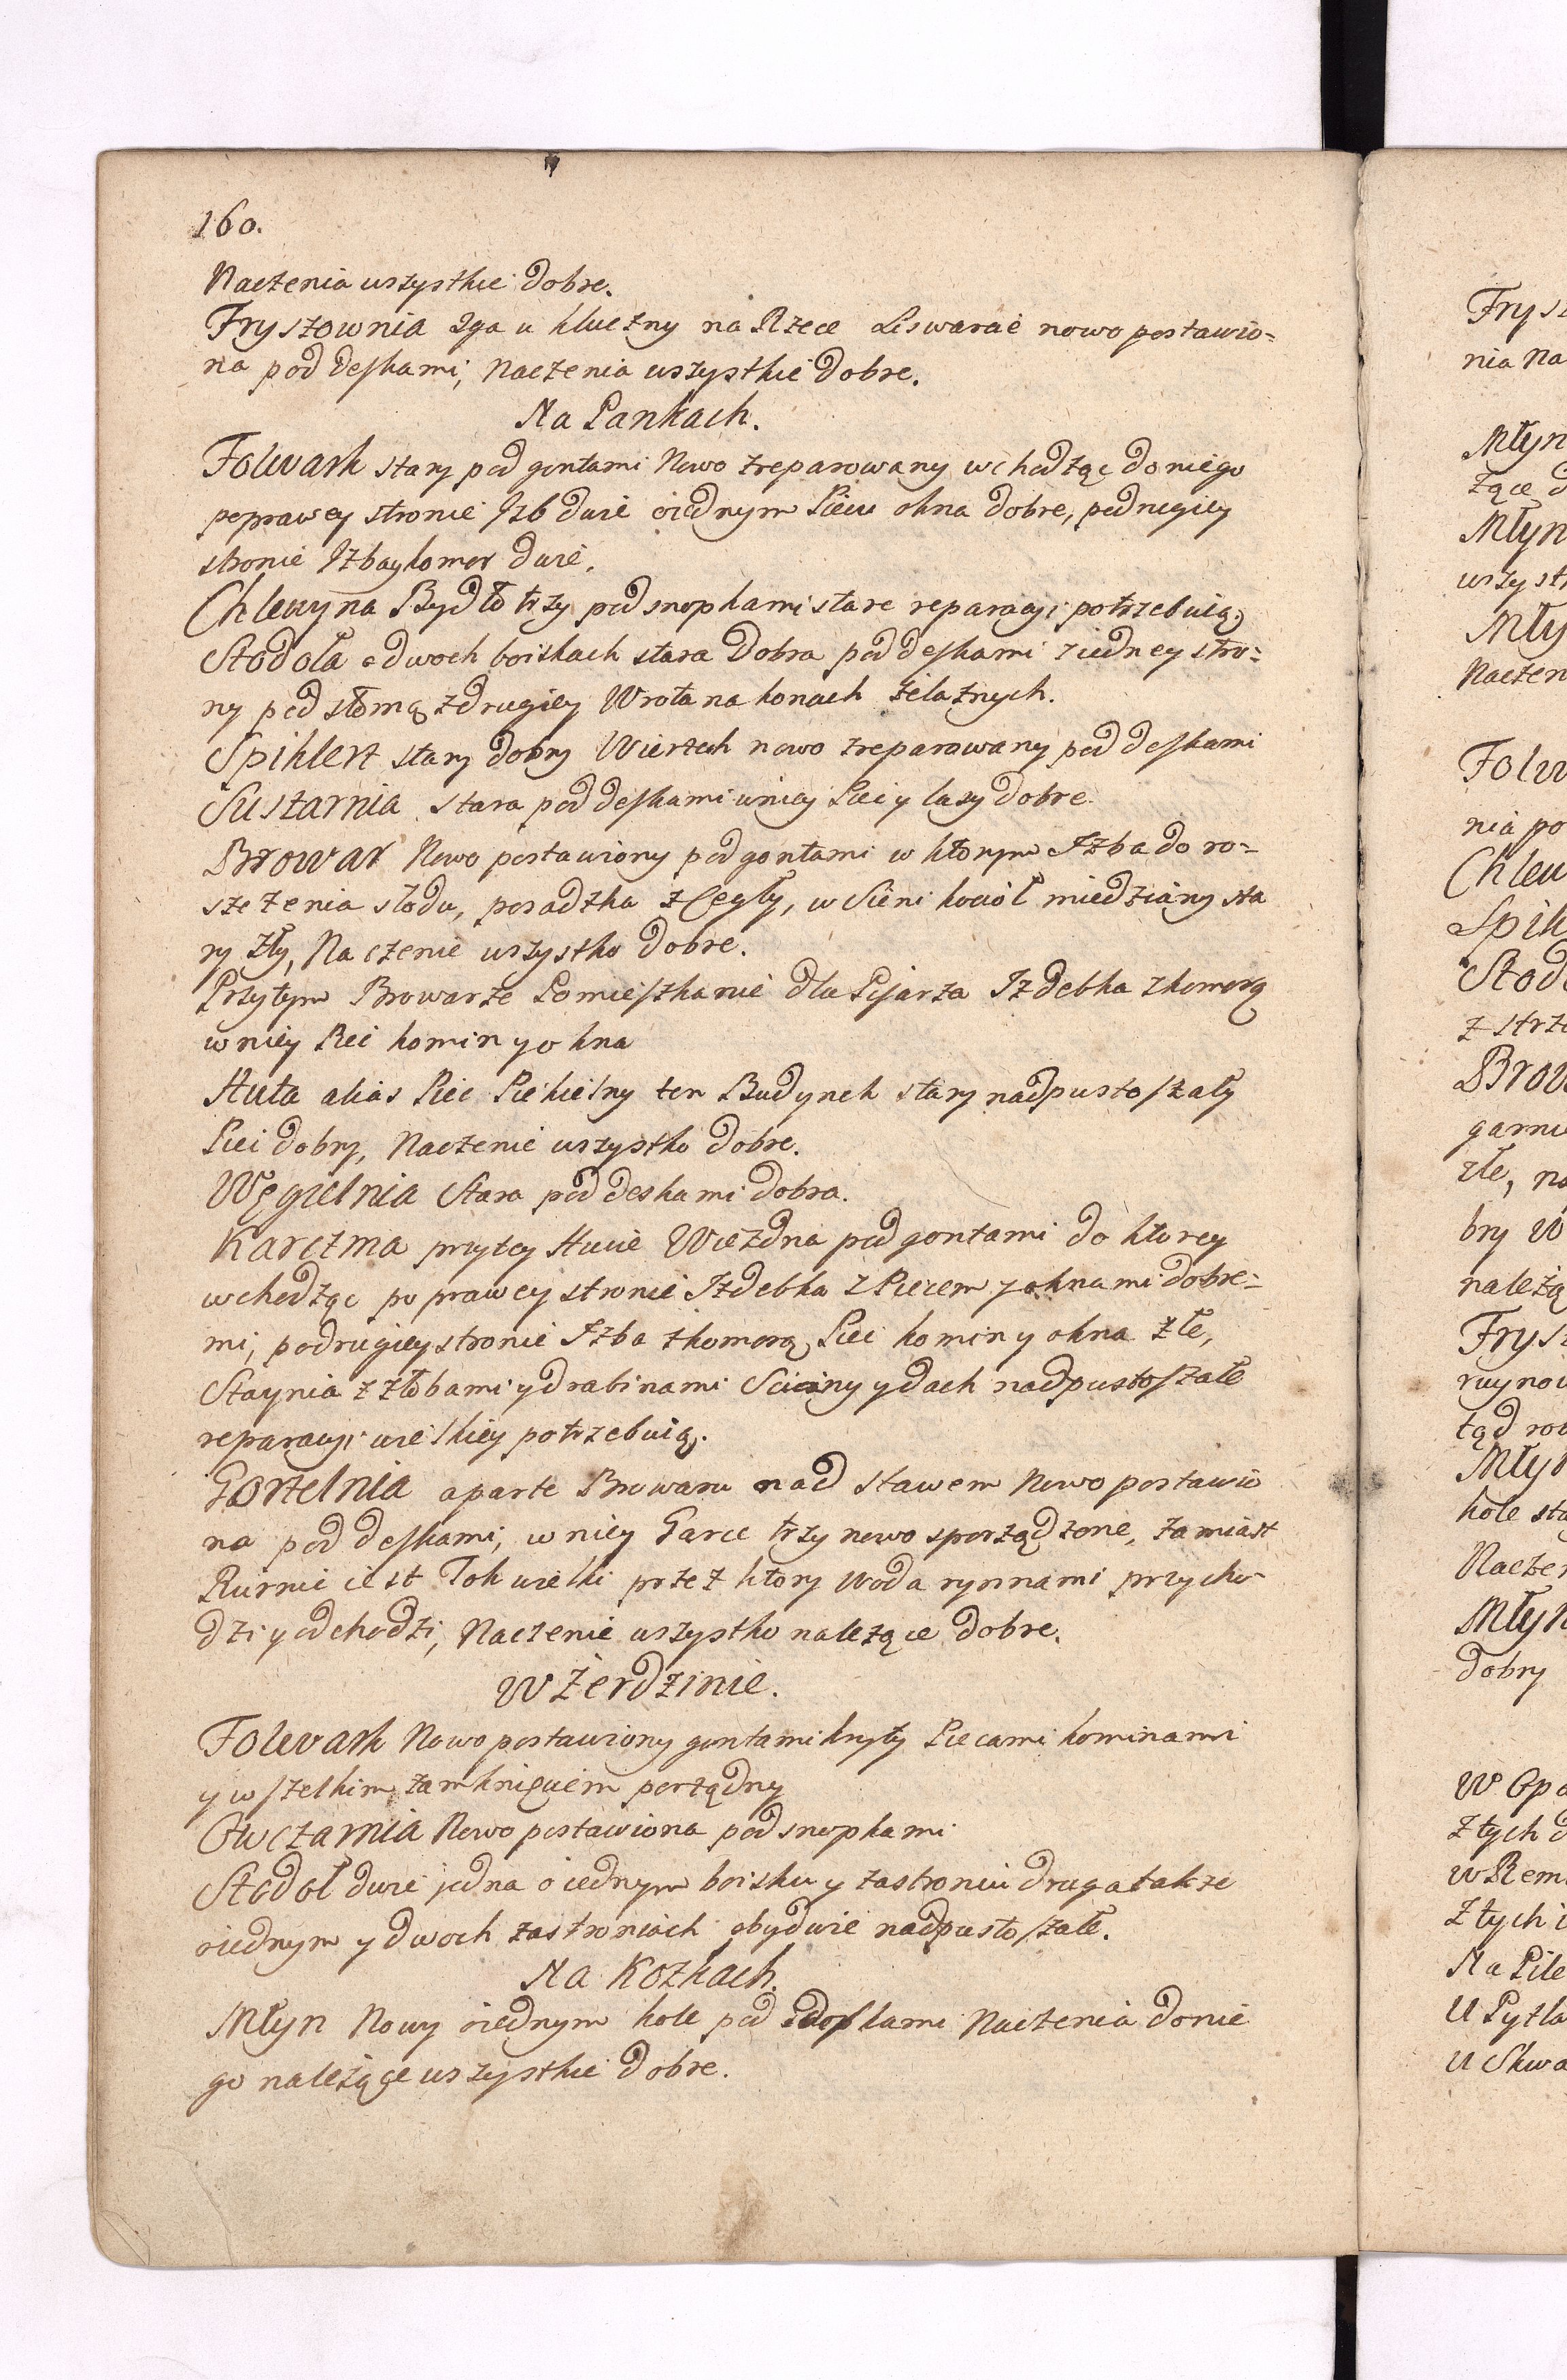 160.
Naczenia wszystkie dobre.
Fryszownia 2ga u kluczny na Rzece Liswarcie nowo postawio=
na pod deskami, Naczenia wszystkie dobre.
Na Pankach.
Folwark stary pod gontami Nowo zreparowany wchodząc do niego
po prawey stronie Izb dwie o iednym Piecu okna dobre, po drugiey
stronie Izba y komor dwie.
Chlewy na Bydło trzy pod snopkami stare reparacyi potrzebuią,
Stodoła o dwoch boiskach stara Dobra pod deskami z iedney stro=
ny pod słomą z drugiey Wrota na konach żelaznych.
Spiklerz stary dobry Wierzch nowo zreparowany pod deskami
Suszarnia stara pod deskami w niey Piec y lasy dobre
Browar Nowo postawiony pod gontami w ktorym Izba do ro=
szczenia słodu, posadzka z Cegły, w Sieni kocioł miedziany sta
ry zły, Naczenie wszystko dobre.
Przy tym Browarze Pomieszkanie dla Pisarza Izdebka z komorą
w niey Piec komin y okna
Huta alias Piec Piekielny ten Budynek stary nadpustoszały
Piec dobry, Naczenie wszystko dobre.
Węgielnia Stara pod deskami dobra.
Karczma przy tey Hucie Wiezdna pod gontami do ktorey
wchodząc po prawey stronie Izdebka z Piecem y oknami dobre=
mi, po drugiey stronie Izba z komorą Piec komin y okna złe,
Staynia z złobami y drabinami Sciany y dach nadpustoszałe
reparacyi wielkiey potrzebuią.
Gorzelnia aparte Browaru nad stawem Nowo postawio
na pod deskami, w niey Garce trzy nowo sporządzone, zamiast
Rurnic iest Tok wielki przez ktory woda rynnami przycho-
dzi y odchodzi, Naczenie wszystko należące dobre.
W Żerdzinie.
Folwark Nowo postawiony gontami kryty Piecami kominami
y wszelkim zamknięciem porządny
Owczarnia Nowo postawiona pod snopkami
Stodoł dwie jedna o iednym boisku y zastroniu druga także
o iednym y dwoch zastroniach obydwie nadpustoszałe.
Na Kozkach.
Młyn Nowy o iednym kole pod deskami Naczenia do nie
go należące wszystkie dobre.